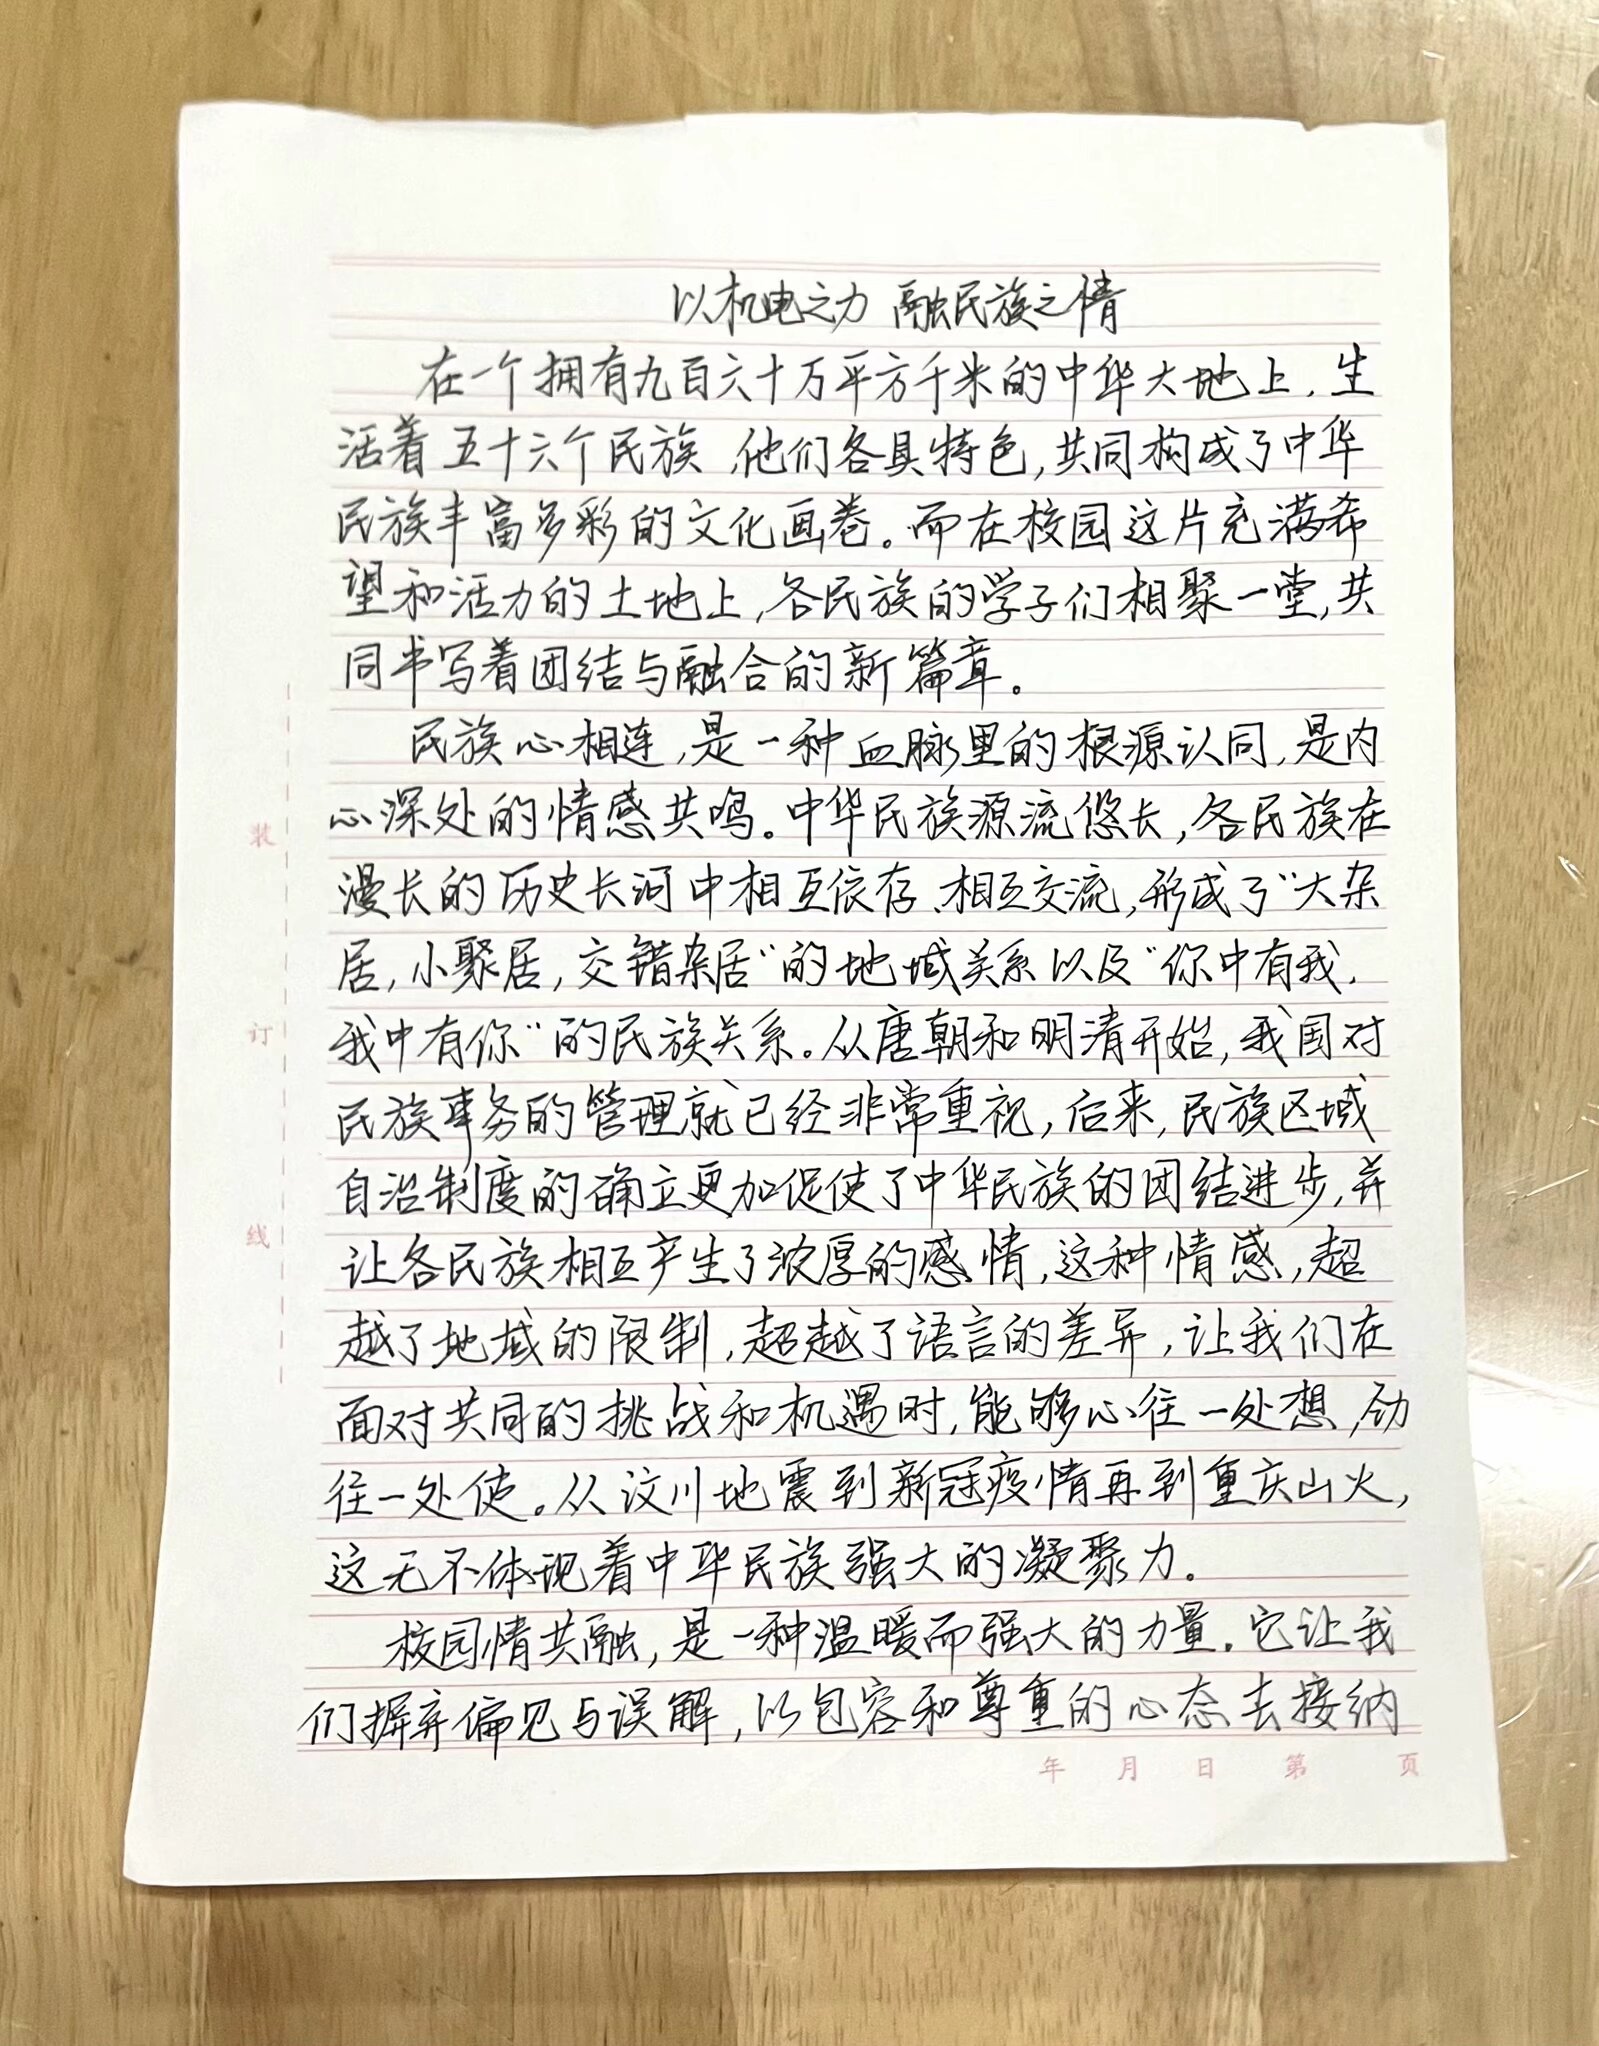 以机电之力 融民族之情
在一个拥有九百六十万平方千米的中华大地上，生
活着五十六个民族，他们各具特色，共同构成了中华
民族丰富多彩的文化画卷。而在校园这片充满希
望和活力的土地上，各民族的学子们相聚一堂，共
同书写着团结与融合的新篇章。
民族心相连，是一种血脉里的根源认同，是内
心深处的情感共鸣。中华民族源流悠长，各民族在
漫长的历史长河中相互依存、相互交流，形成了“大杂
居，小聚居，交错杂居”的地域关系以及“你中有我，
我中有你”的民族关系。从唐朝和明清开始，我国对
民族事务的管理就已经非常重视，后来，民族区域
自治制度的确立更加促使了中华民族的团结进步，并
让各民族相互产生了浓厚的感情，这种情感，超
越了地域的限制，超越了语言的差异，让我们在
面对共同的挑战和机遇时，能够心往一处想，劲
往一处使。从汶川地震到新冠疫情再到重庆山火，
这无不体现着中华民族强大的凝聚力。
校园情共融，是一种温暖而强大的力量。它让我
们摒弃偏见与误解，以包容和尊重的心态去接纳
装
订
线
年 月 日 第 页